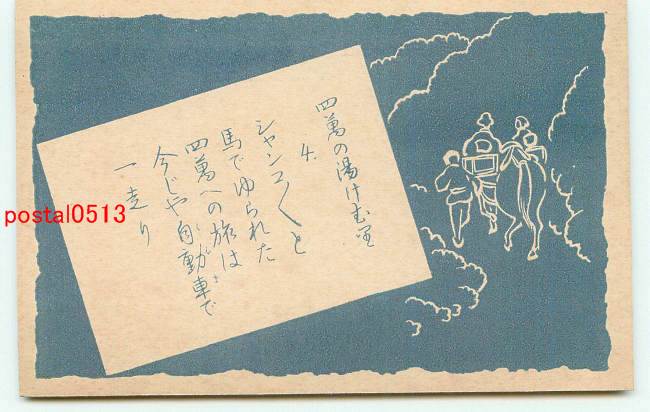 四萬の湯けむり
4.
シャンコ〱と
馬でゆられた
四萬への旅は
今じや自動車で
一走り
postal0513